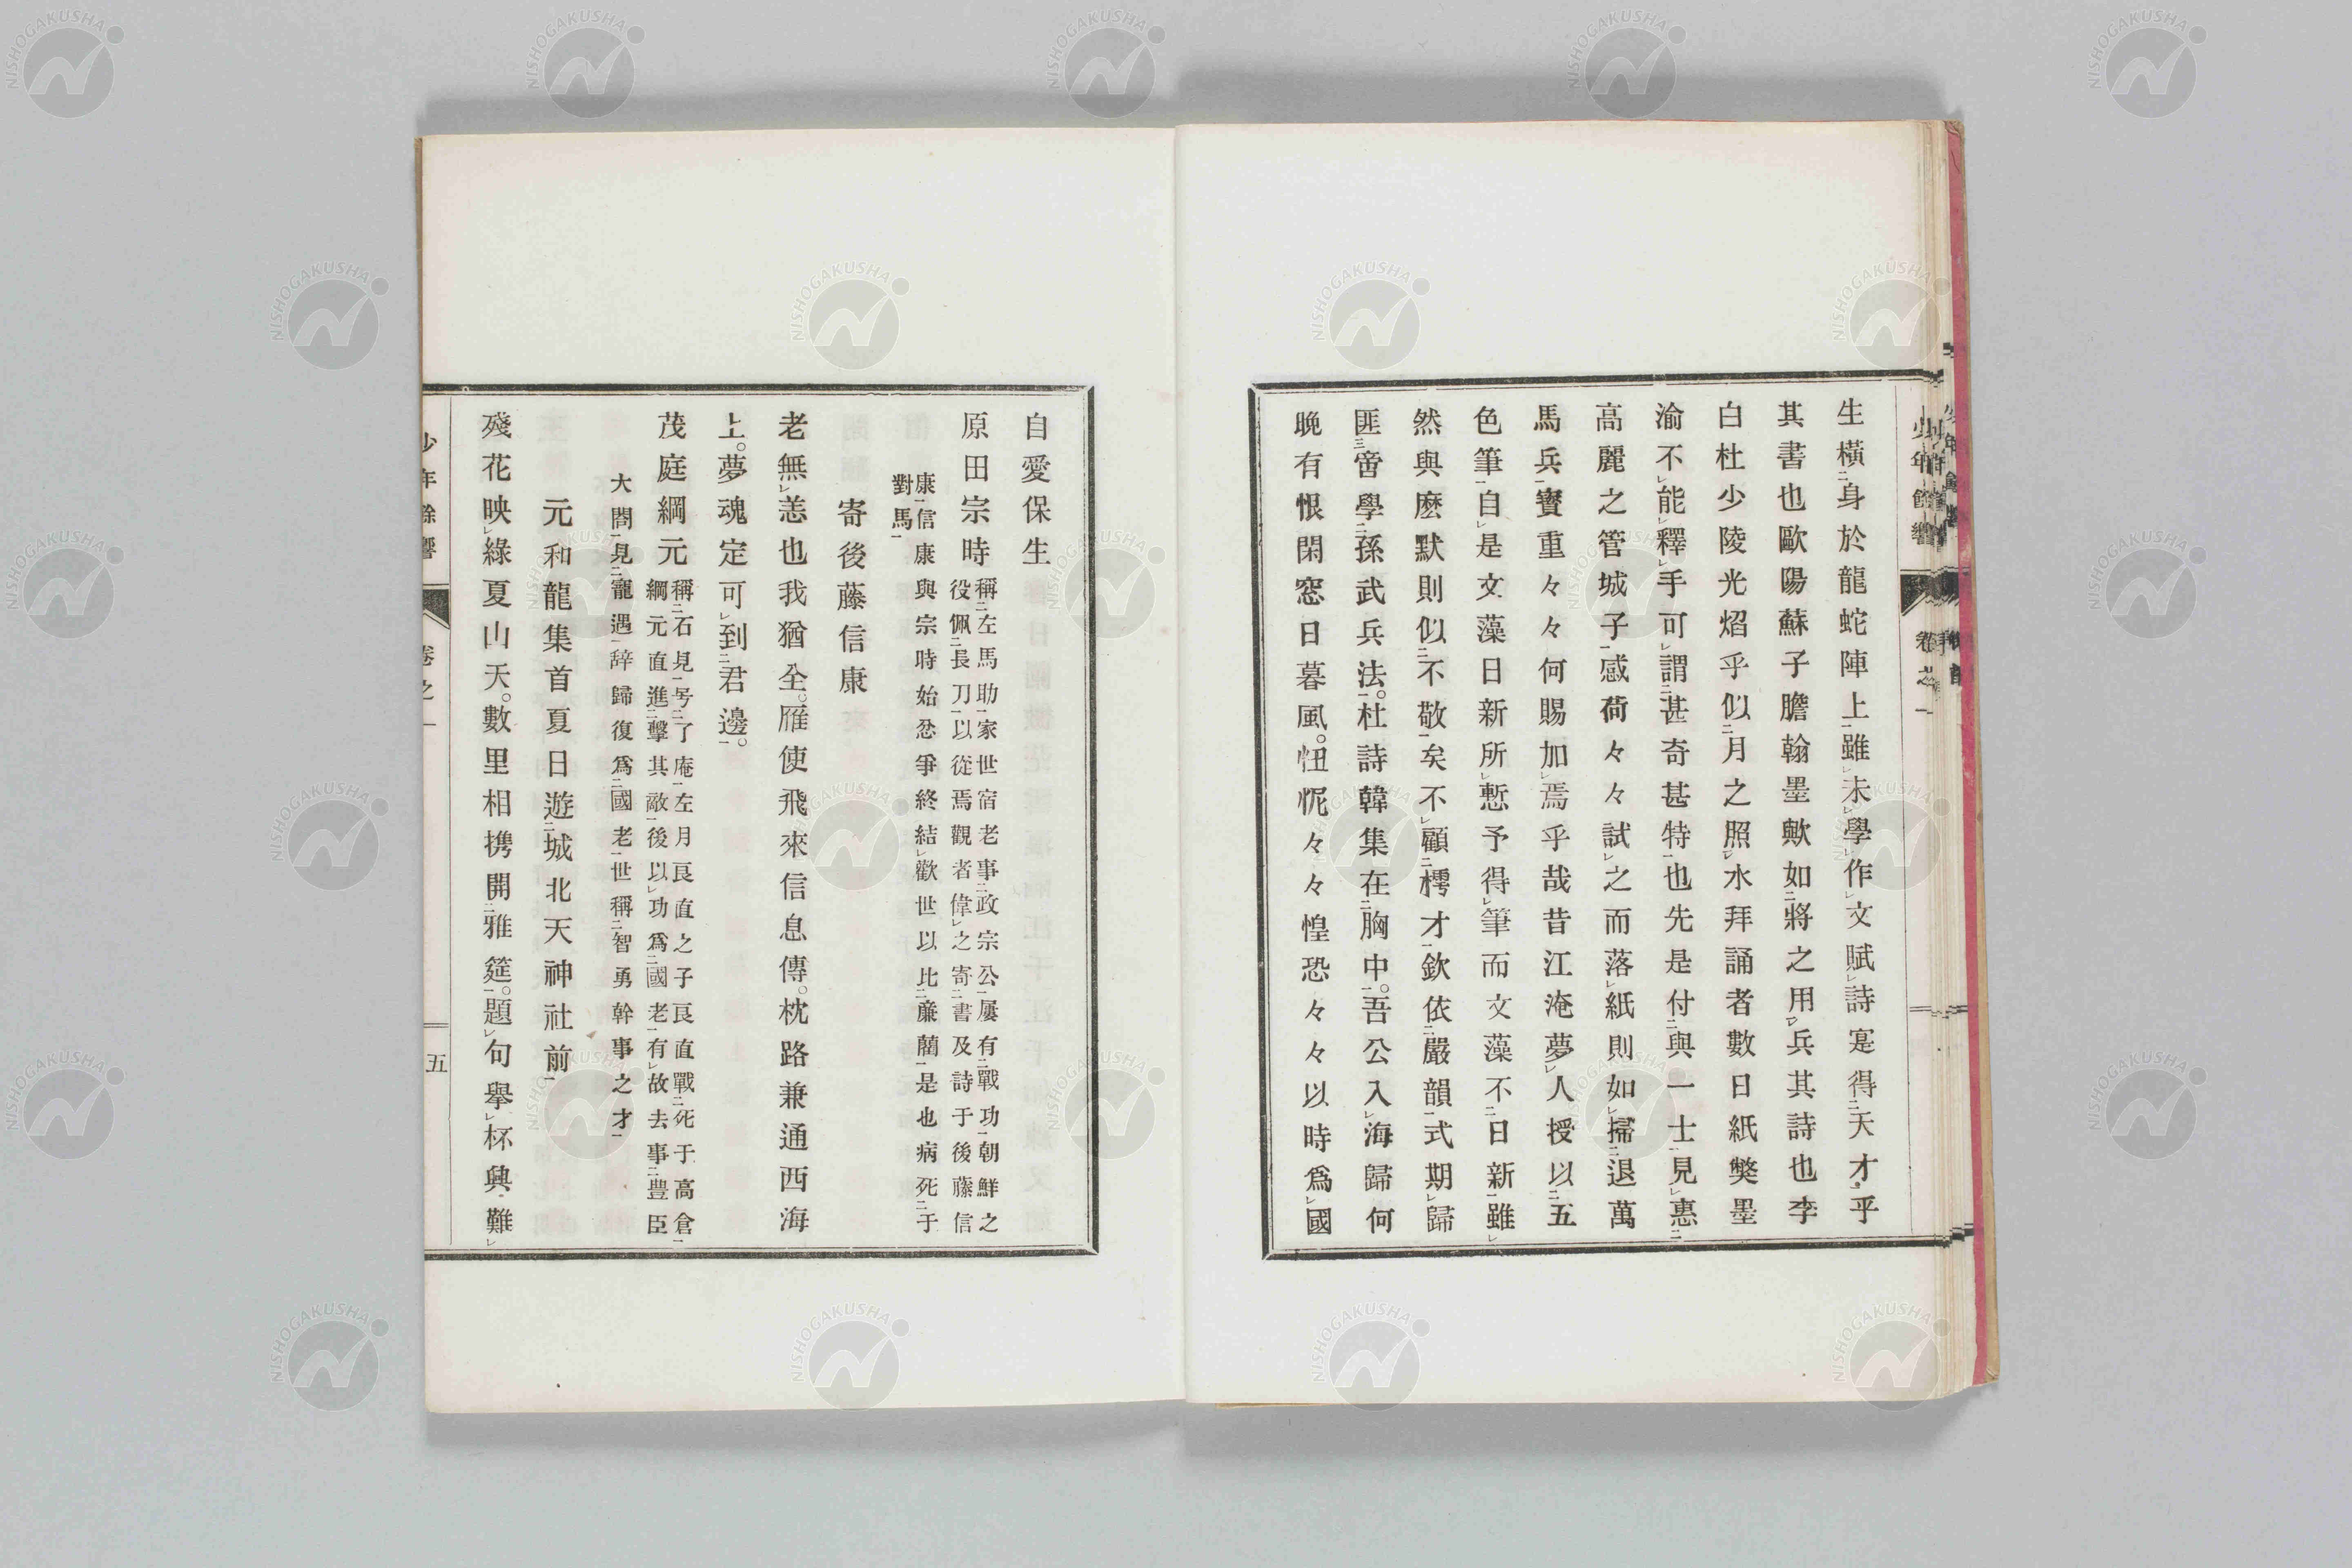 生橫身於龍蛇陣上雖未學作文賦詩寔得天才乎
其書也歐陽蘇子膽翰墨歟如將之用兵其詩也李
白杜少陵光熖乎似月之照水拜誦者數日紙獘墨
渝不能釋手可謂甚奇甚特也先是付與一士見惠
高麗之管城子感荷々々試之而落紙則如掃退萬
馬兵寶重々々何賜加焉乎哉昔江淹夢人授以五
色筆自是文藻日新所慙予得筆而文藻不日新雖
然與麽默則似不敬矣不顧樗才欽依嚴韻式期歸
匪啻學孫武兵法。杜詩韓集在胸中。吾公入海歸何
晚有恨閑窓日暮風。忸怩々々惶恐々々以時爲國
自愛保生
原田宗時
稱左馬助家世宿老事政宗公屢有戰功朝鮮之
役佩長刀以從焉觀者偉之寄書及詩于後藤信
康信康與宗時始忿爭終結歡世以比廉藺是也病死于
對馬
寄後藤信康
老無恙也我猶全。雁使飛來信息傳。枕路兼通西海
上。夢魂定可到君邊。
茂庭綱元
稱石見号了庵左月良直之子良直戰死于高倉
綱元直進擊其敵後以功爲國老有故去事豊臣
大閤見寵遇辞歸復爲國老世稱智勇幹事之才
元和龍集首夏日遊城北天神社前
殘花映綠夏山天。數里相携開雅筵。題句擧杯興難
卷之一
五
NISHOGAKUSHA